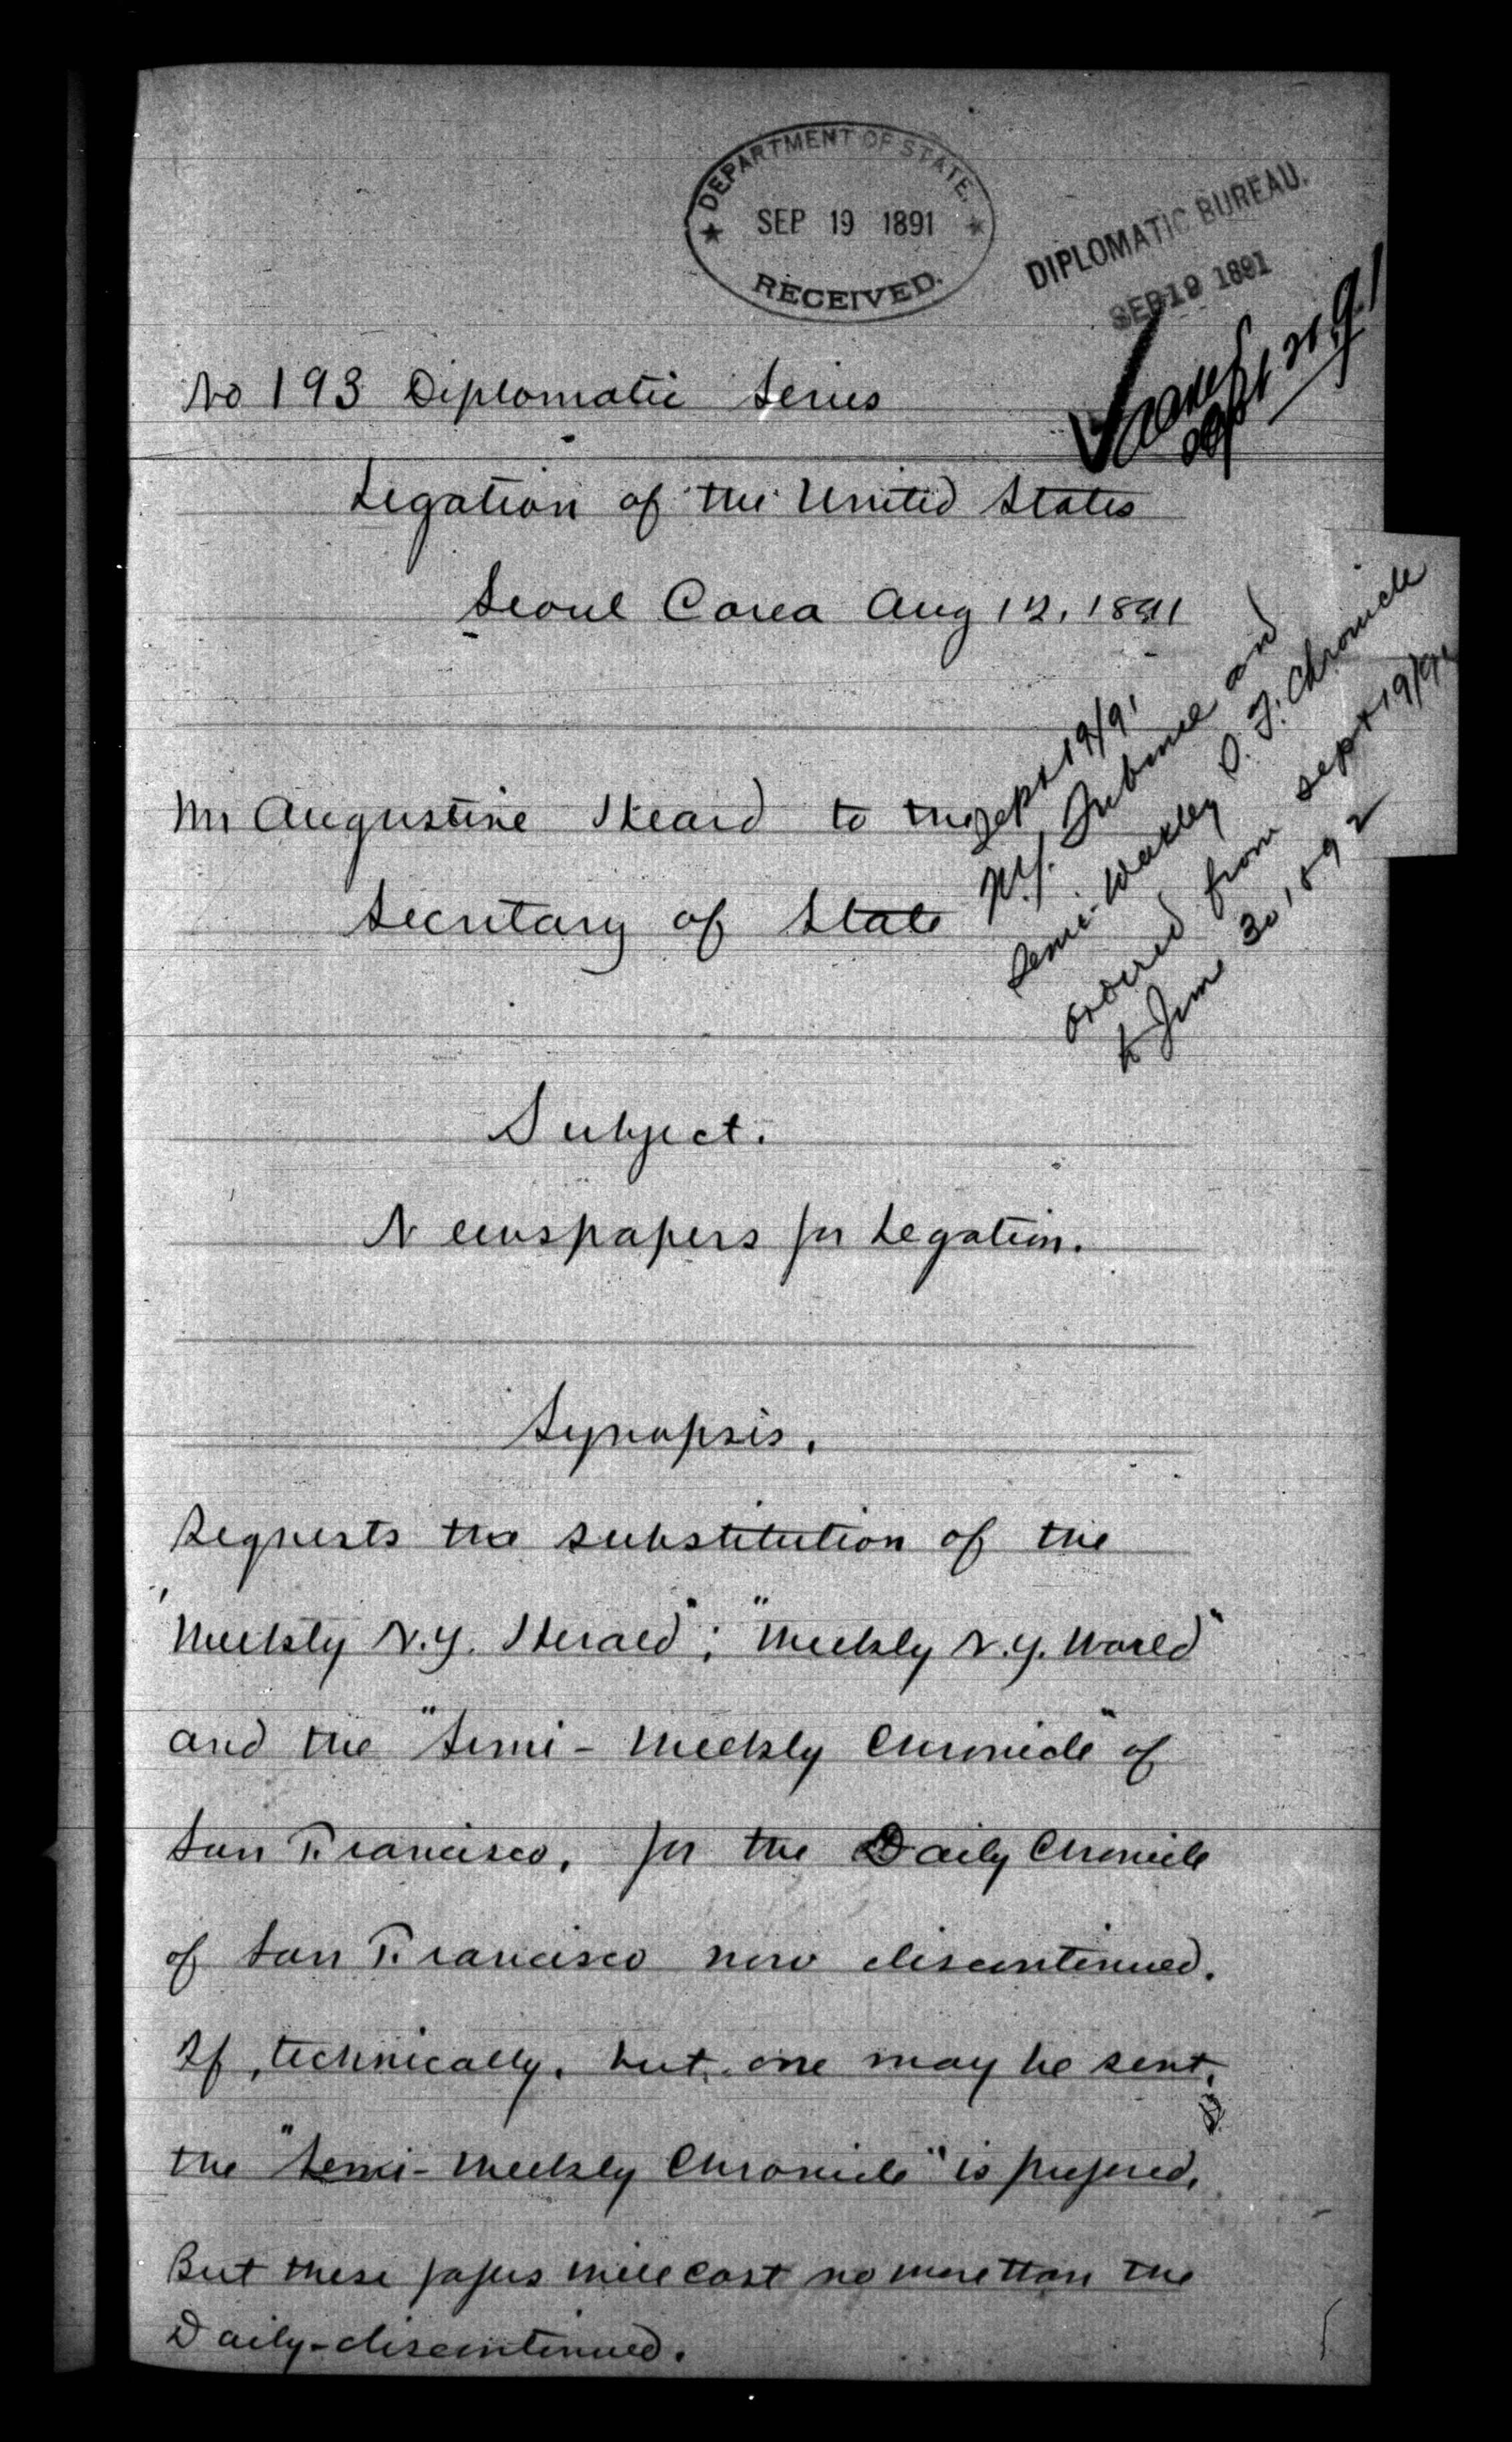 DEPARTMENT OF STATE.
SEP 19 1891
RECEIVED.
DIPLOMATIC BUREAU.
SEP 19 1891
Sept 21, 91
No 193 Diplomatic Series
Legation of the United States
Seoul Corea Aug 12, 1891
Mr Augustine Heard to the
Secretary of State
Sept 19/91
N.Y. Tribune and
Semi-Weekly S. F. Chronicle
ordered from Sept 19/91
to June 30, 1892
Subject.
Newspapers for Legation.
Synopsis.
Requests the substitution of the
"Weekly N.Y. Herald"; "Weekly N.Y. World"
and the "Semi-Weekly Chronicle" of
San Francisco, for the Daily Chronicle
of San Francisco now discontinued.
If, technically, but one may be sent,
the "Semi-Weekly Chronicle" is prefered,
But these papers will cost no more than the
Daily-discontinued.